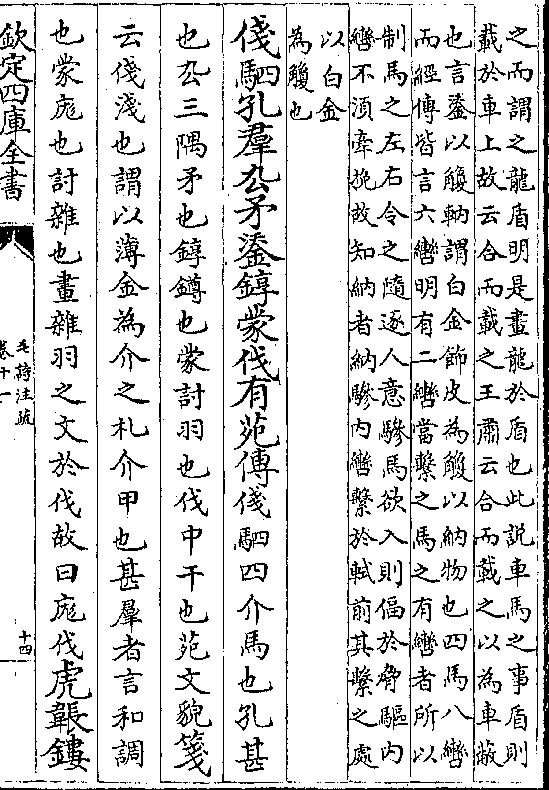 之而謂之龍盾明是畫龍於盾也此説車馬之事盾則
載於車上故云合而載之王肅云合而載之以為車蔽
也言鋈以觼軜謂白金飾皮為觼以納物也四馬八轡
而經傳皆言六轡明有二轡當繫之馬之有轡者所以
制馬之左右令之隨逐人意驂馬欲入則偪於脅驅内
轡不湏牽挽故知納者納驂内轡繫於軾前其繫之處
以白金
為觼也
俴駟孔羣厹矛鋈錞蒙伐有苑傳俴駟四介馬也孔甚
也厹三隅矛也錞鐏也蒙討羽也伐中干也苑文貌箋
云俴淺也謂以薄金為介之札介甲也甚羣者言和調
也蒙厖也討雜也畫雜羽之文於伐故曰厖伐虎韔鏤
欽定四庫全書
毛詩注疏
卷十一
十四